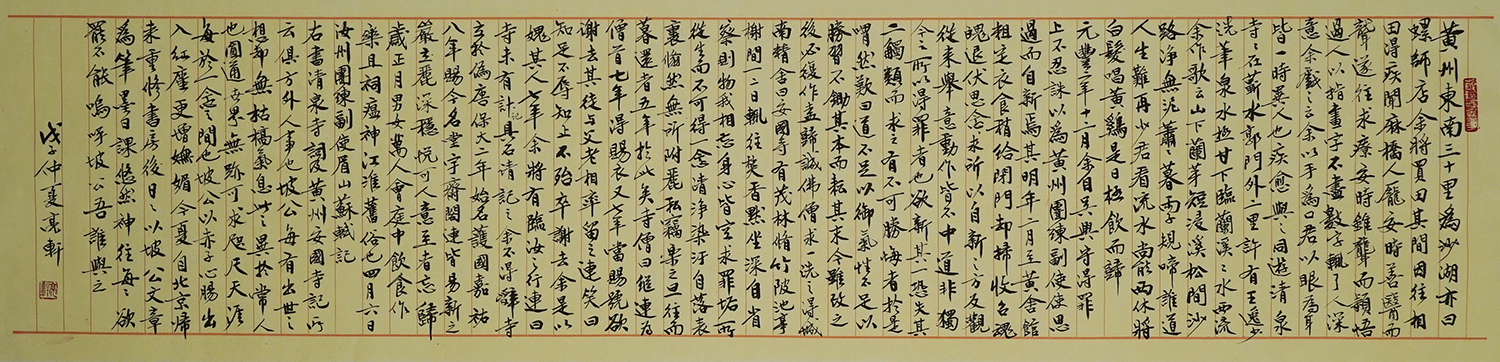 黄州東南三十里為沙湖亦曰
螺師店余將買田其間因往相
田得疾聞麻橋人龐安時善醫而
聾遂往求療安時雖聾而穎悟
過人以指畫字不盡數字輒了人深
意余戲之云余以手為口君以眼為耳
皆一時異人也疾愈與之同遊清泉
寺寺在蘄水郭門外二里許有王逸少
洗筆泉水極甘下臨蘭溪溪水西流
余作歌云山下蘭芽短浸溪松間沙
路浄無泥蕭蕭暮雨子規啼誰道
人生難再少君看流水尚能西休將
白髮唱黄鷄是日極飲而歸
元豐二年十二月余自吳興守得罪
上不忍誅以為黄州團練副使使思
過而自新焉其明年二月至黄舍館
粗定衣食稍給閉門却掃收召魂
魄退伏思念求所以自新之方反觀
從來舉意動作皆不中道非獨
今之所以得罪者也欲新其一恐失其
二觸類而求之有不可勝悔者於是
喟然歎曰道不足以御氣性不足以
勝習不鋤其本而耘其末今雖改之
後必復作盍歸誠佛僧求一洗之得城
南精舍曰安國寺有茂林脩竹陂池亭
榭間一二日輒往焚香默坐深自省
察則物我相忘身心皆空求罪垢所
從生而不可得一念清浄染汙自落表
裏翛然無所附麗私竊樂之旦往而
暮還者五年於此矣寺僧曰繼連為
僧首七年得賜衣又七年當賜號欲
謝去其徒與父老相率留之連笑曰
知足不辱知止不殆卒謝去余是以
愧其人七年余將有臨汝之行連曰
寺未有計記具石請記之余不得辭寺
立於偽唐保大二年始名護國嘉祐
八年賜今名堂宇齋閣連皆易新之
嚴立麗深穩悦可人意至者忘歸
歲正月男女萬人會庭中飲食作
樂且祠瘟神江淮舊俗也四月六日
汝州團練副使眉山蘇軾記
右書清泉寺詞及黄州安國寺記所
云俱方外人事也坡公每有出世之
想却無枯槁氣息此之異於常人
也圓通世界無跡可求咫尺天涯
每於一念之間也坡公以赤子心腸出
入紅塵更增嫵媚今夏自北京歸
来重修書房後日日以坡公文章
為筆墨日課悠然神往每每欲
罷不能嗚呼坡公吾誰與之
戊子仲夏亮軒